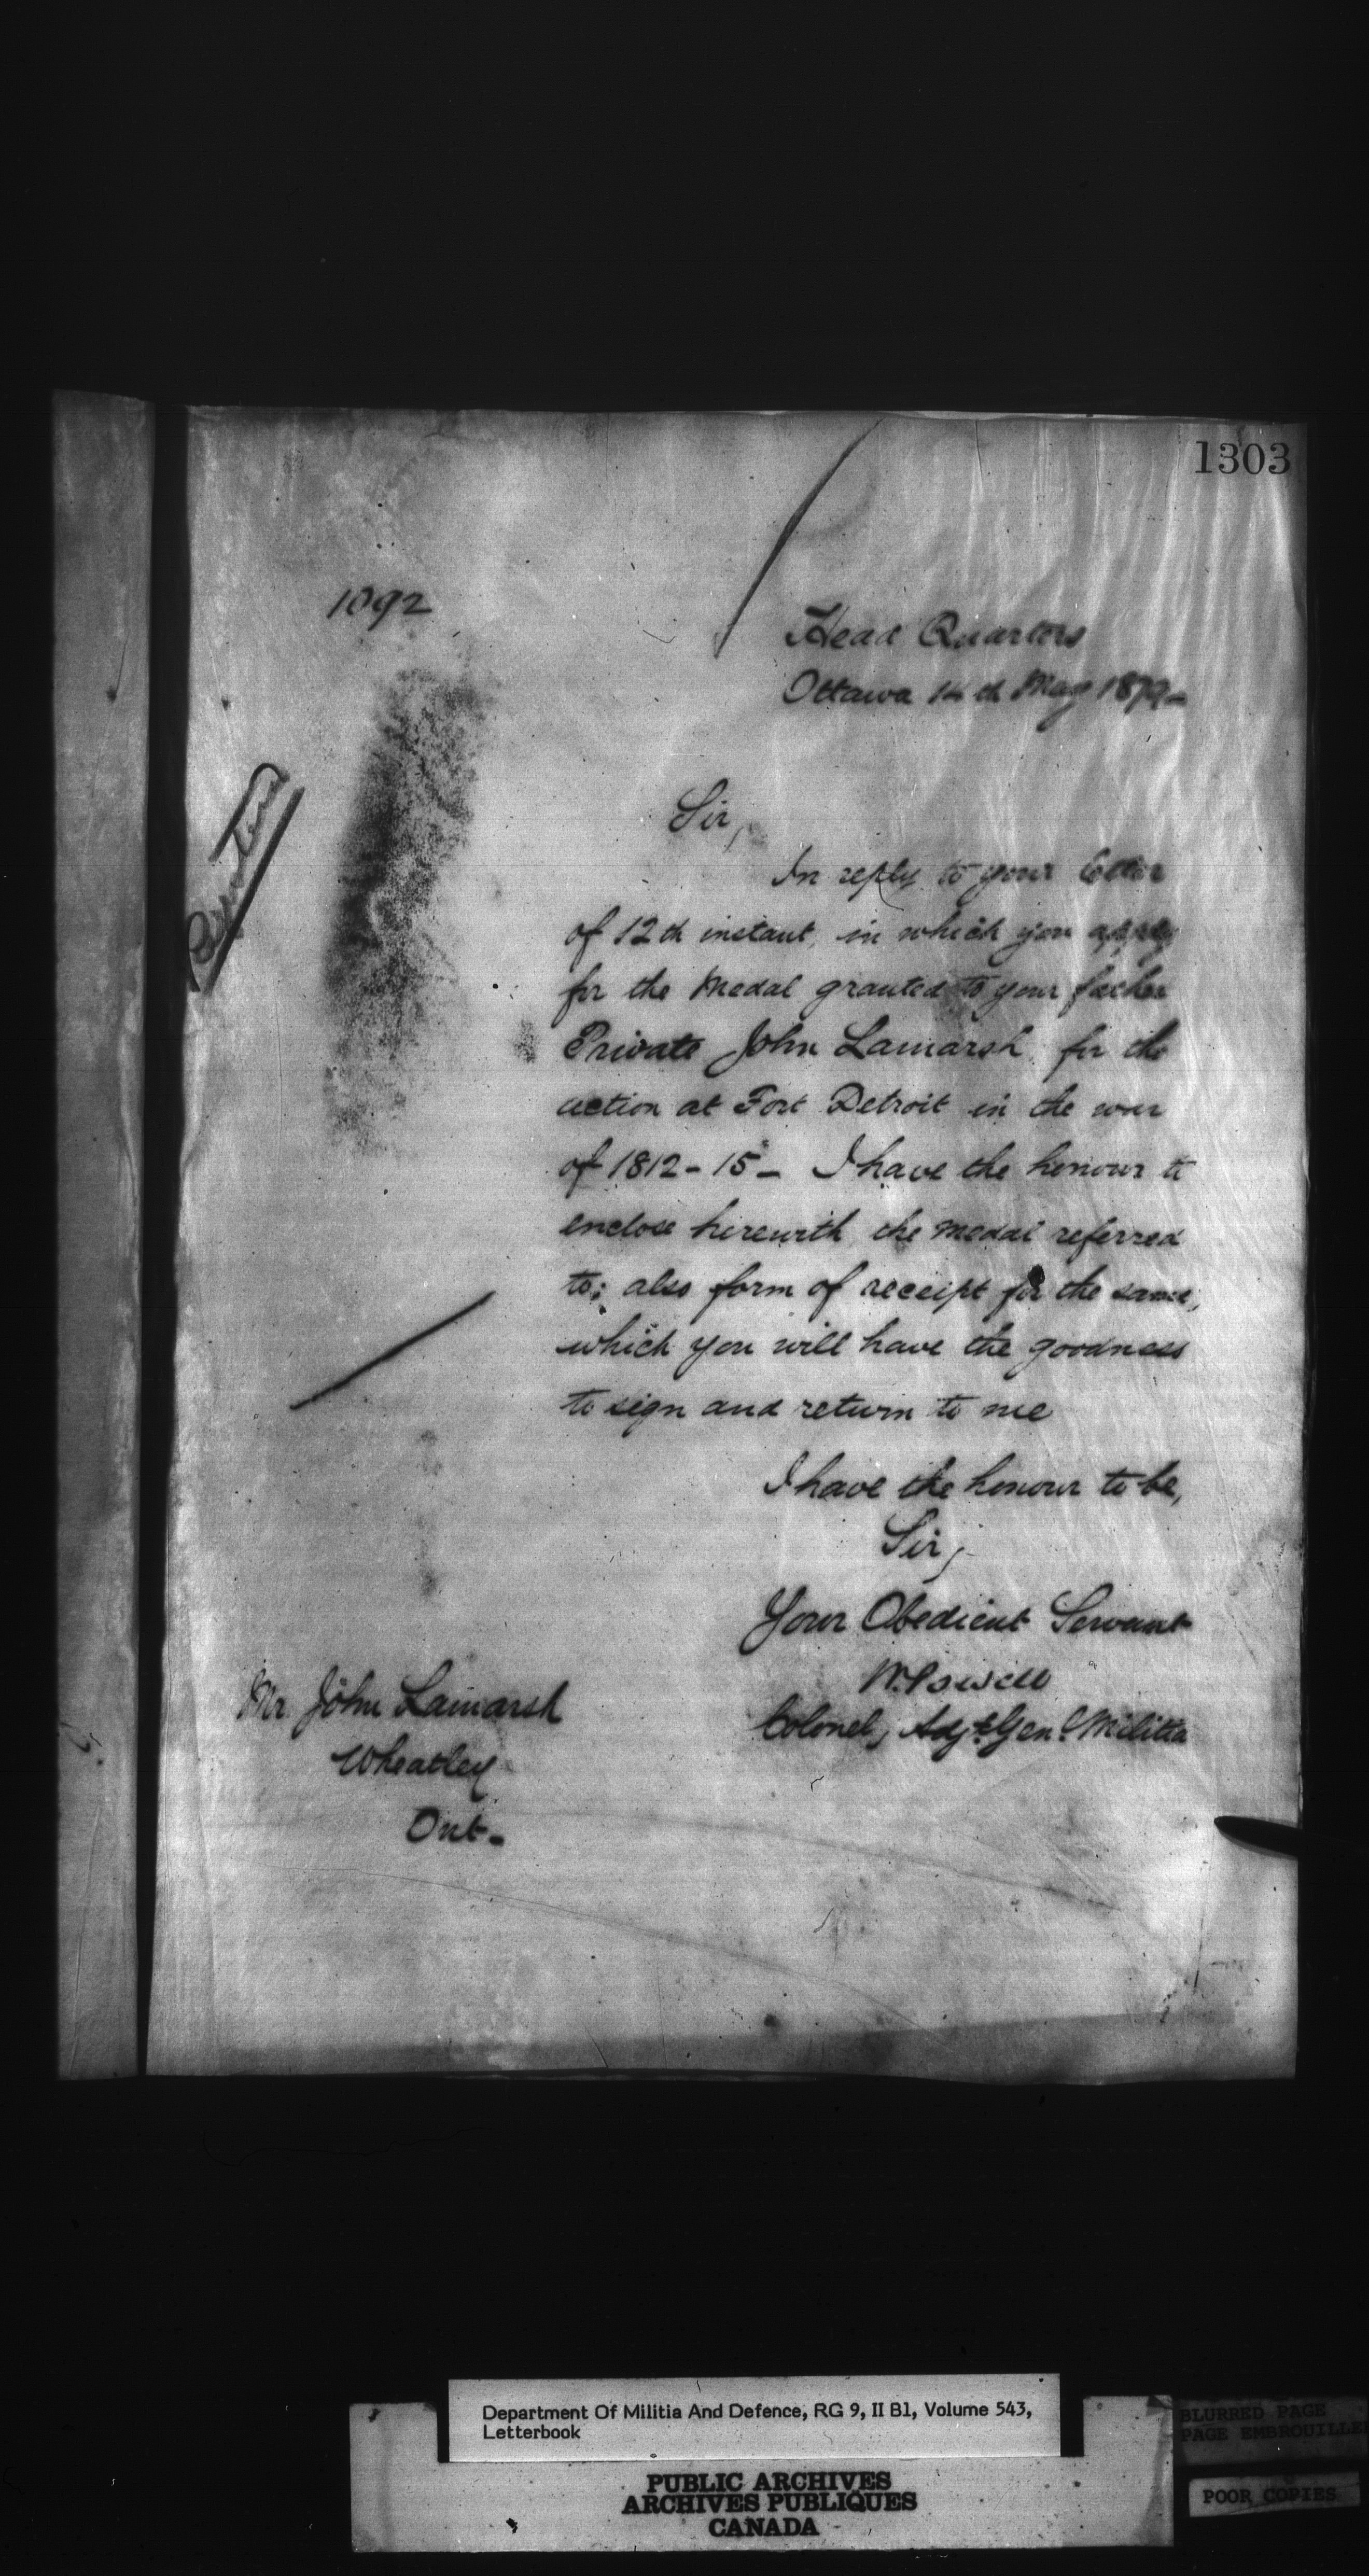 1303
1092
Head Quarters
Ottawa 14th May 1879-
Registered
Sir,
In reply to your letter
of 12th instant, in which you apply
for the Medal granted to your father
Private John Lamarsh, for the
action at Fort Detroit in the war
of 1812-15- I have the honour to
enclose herewith, the medal referred
to; also form of receipt for the same,
which you will have the goodness
to sign and return to me
I have the honour to be,
Sir,
Your Obedient Servant
W. Powell
Colonel, Adjt Genl Militia
Mr. John Lamarsh
Wheatley
Ont-
Department Of Militia And Defence, RG 9, II B1, Volume 543,
Letterbook
PUBLIC ARCHIVES
ARCHIVES PUBLIQUES
CANADA
BLURRED PAGE
PAGE EMBROUILLE
POOR COPIES